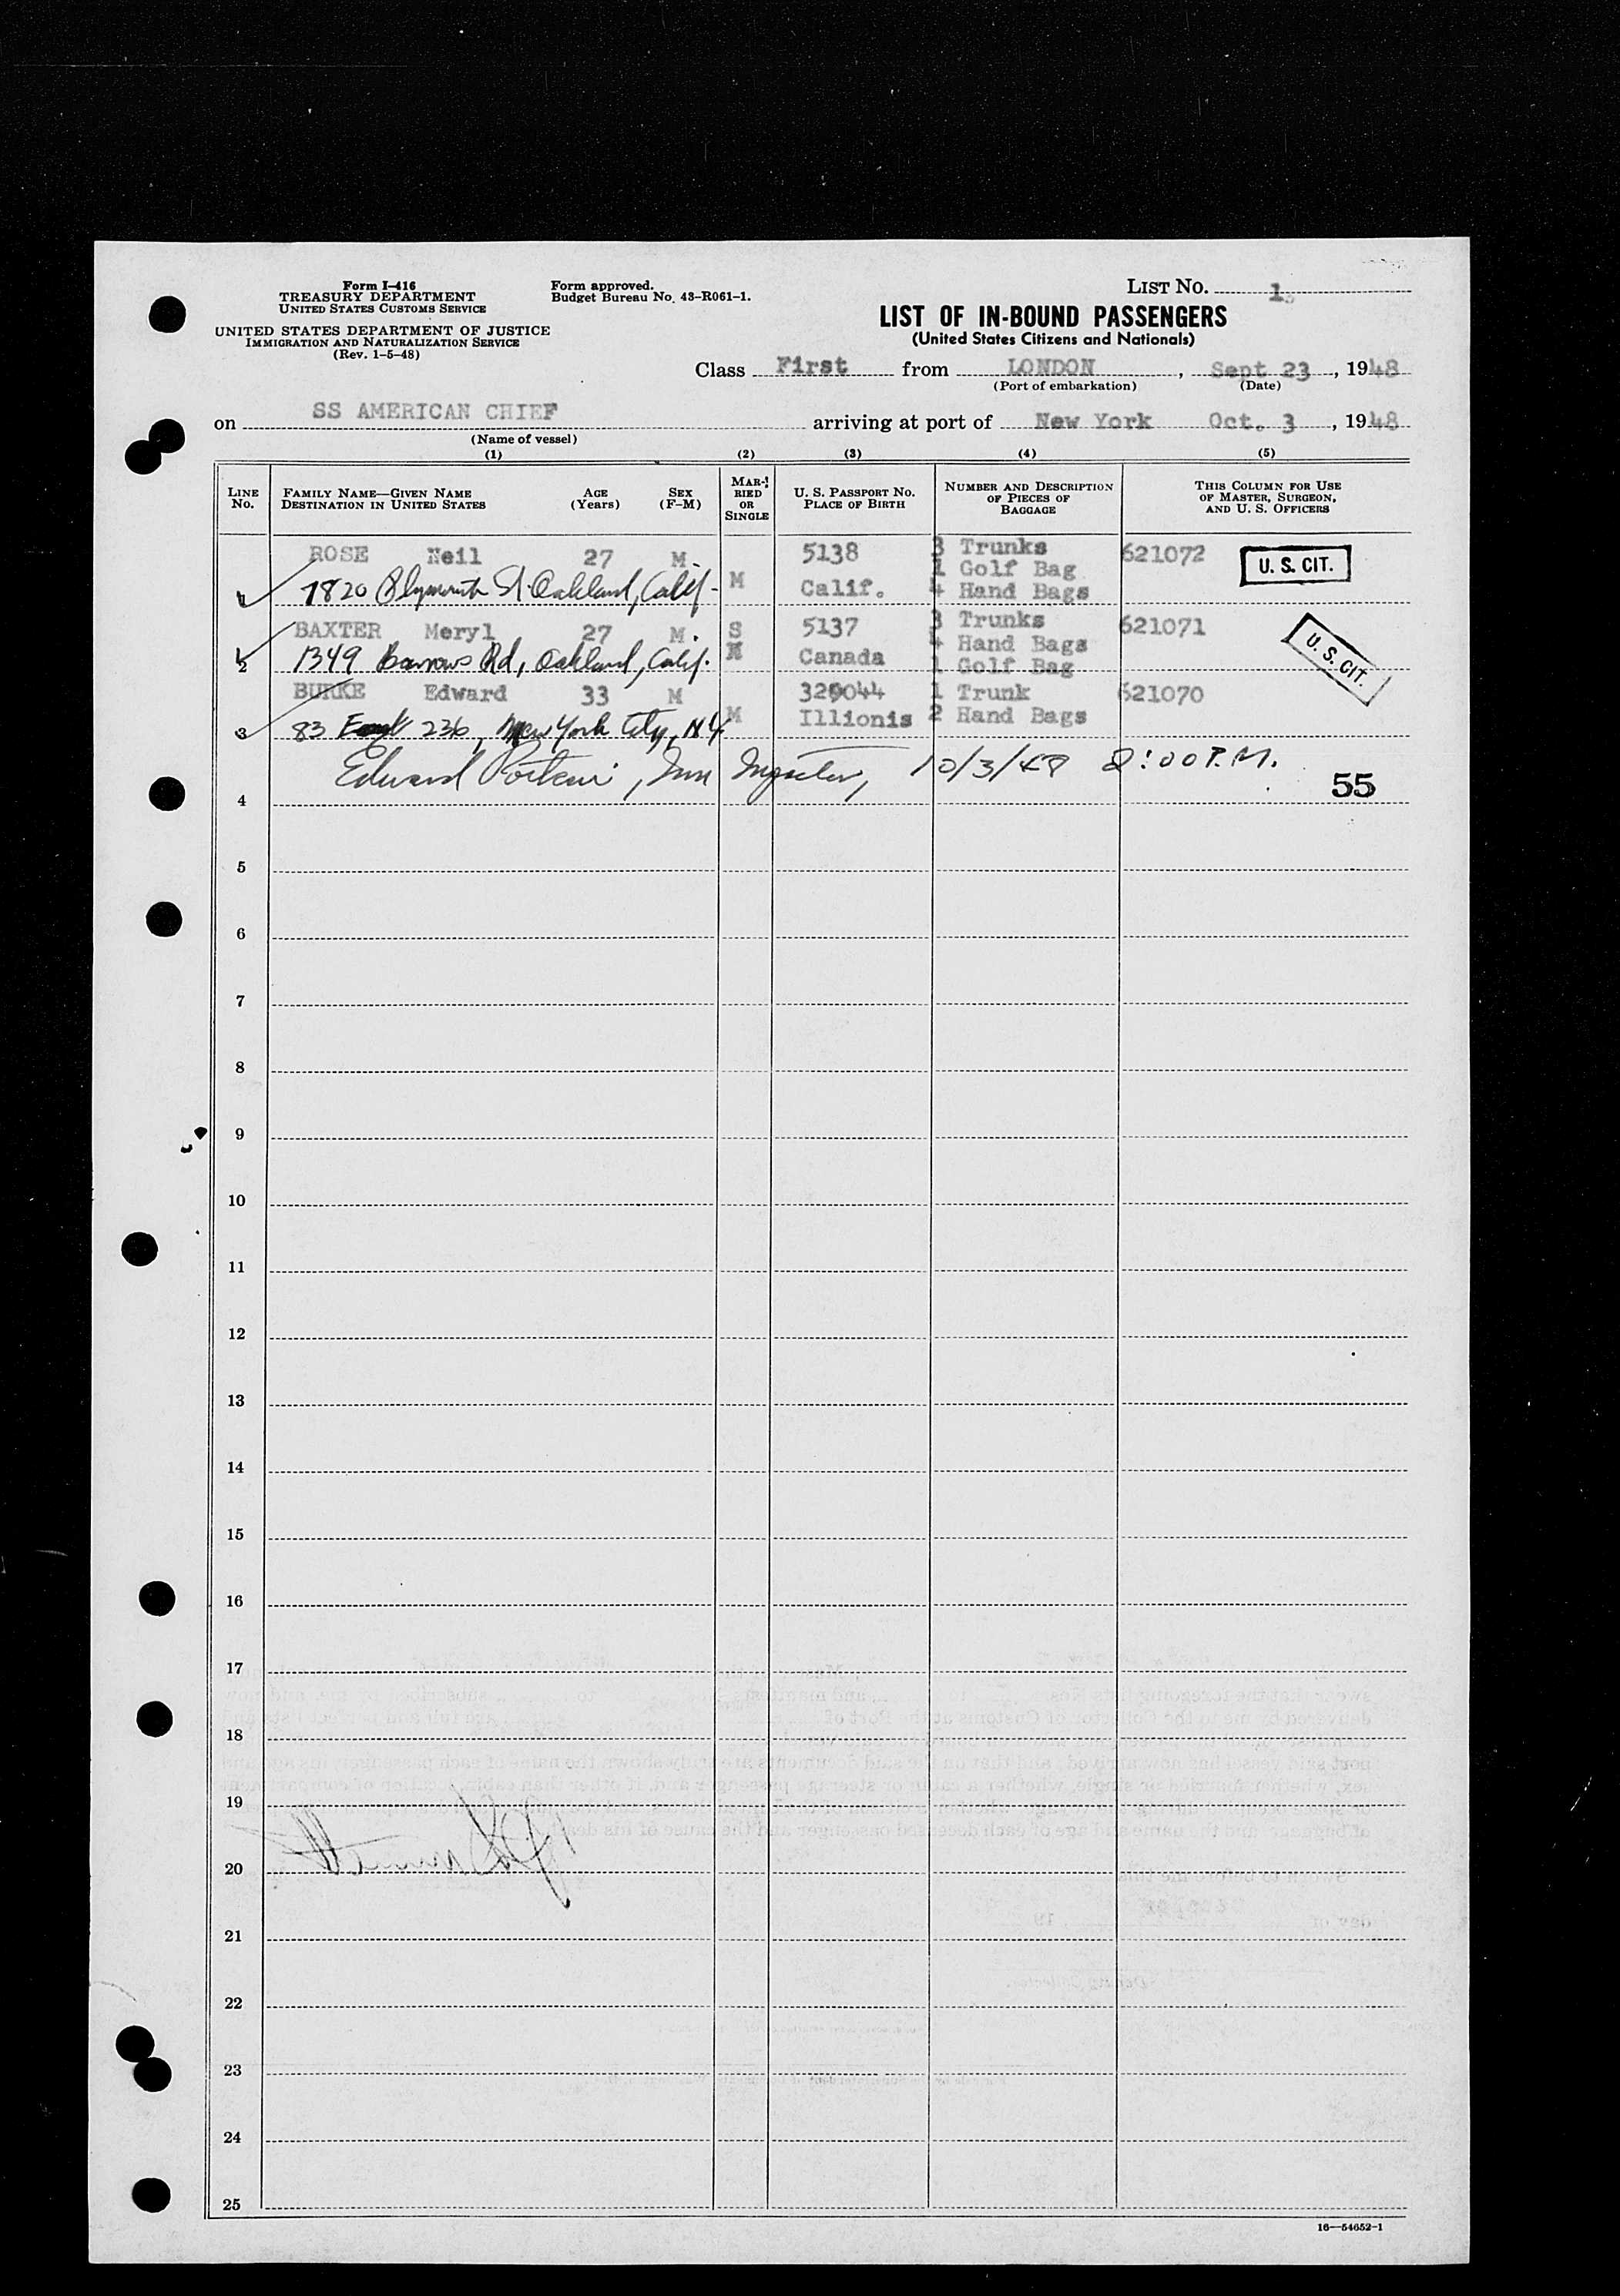 Form I-416
TREASURY DEPARTMENT
UNITED STATES CUSTOMS SERVICE
UNITED STATES DEPARTMENT OF JUSTICE
IMMIGRATION AND NATURALIZATION SERVICE
(Rev. 1-5-48)
Form approved.
Budget Bureau No. 43-R061-1.
LIST NO. 1
LIST OF IN-BOUND PASSENGERS
(United States Citizens and Nationals)
Class First from LONDON, Sept 23, 1948
(Port of embarkation) (Date)
on SS AMERICAN CHIEF arriving at port of New York Oct. 3, 1948
(Name of vessel)
(1) (2) (3) (4) (5)
LINE NO.
FAMILY NAME—GIVEN NAME AGE SEX
DESTINATION IN UNITED STATES (Years) (F-M)
MARRIED OR SINGLE
U. S. PASSPORT NO.
PLACE OF BIRTH
NUMBER AND DESCRIPTION
OF PIECES OF
BAGGAGE
THIS COLUMN FOR USE
OF MASTER, SURGEON,
AND U. S. OFFICERS
ROSE Neil 27 M. 5138 3 Trunks 621072 U. S. CIT.
1 Golf Bag
1 1820 Plymouth St. Oakland, Calif. M Calif. 4 Hand Bags
BAXTER Meryl 27 M. S 5137 3 Trunks 621071 U. S. CIT.
4 Hand Bags
2 1349 Barrows Rd, Oakland, Calif. Canada 1 Golf Bag
BURKE Edward 33 M 329044 1 Trunk 621070
3 83 East 236, New York City, N.Y. M Illionis 2 Hand Bags
Edward , Imm Inspector, 10/3/48 2:00 P.M.
4 55
5
6
7
8
9
10
11
12
13
14
15
16
17
18
19
20
21
22
23
24
25
16—54652-1